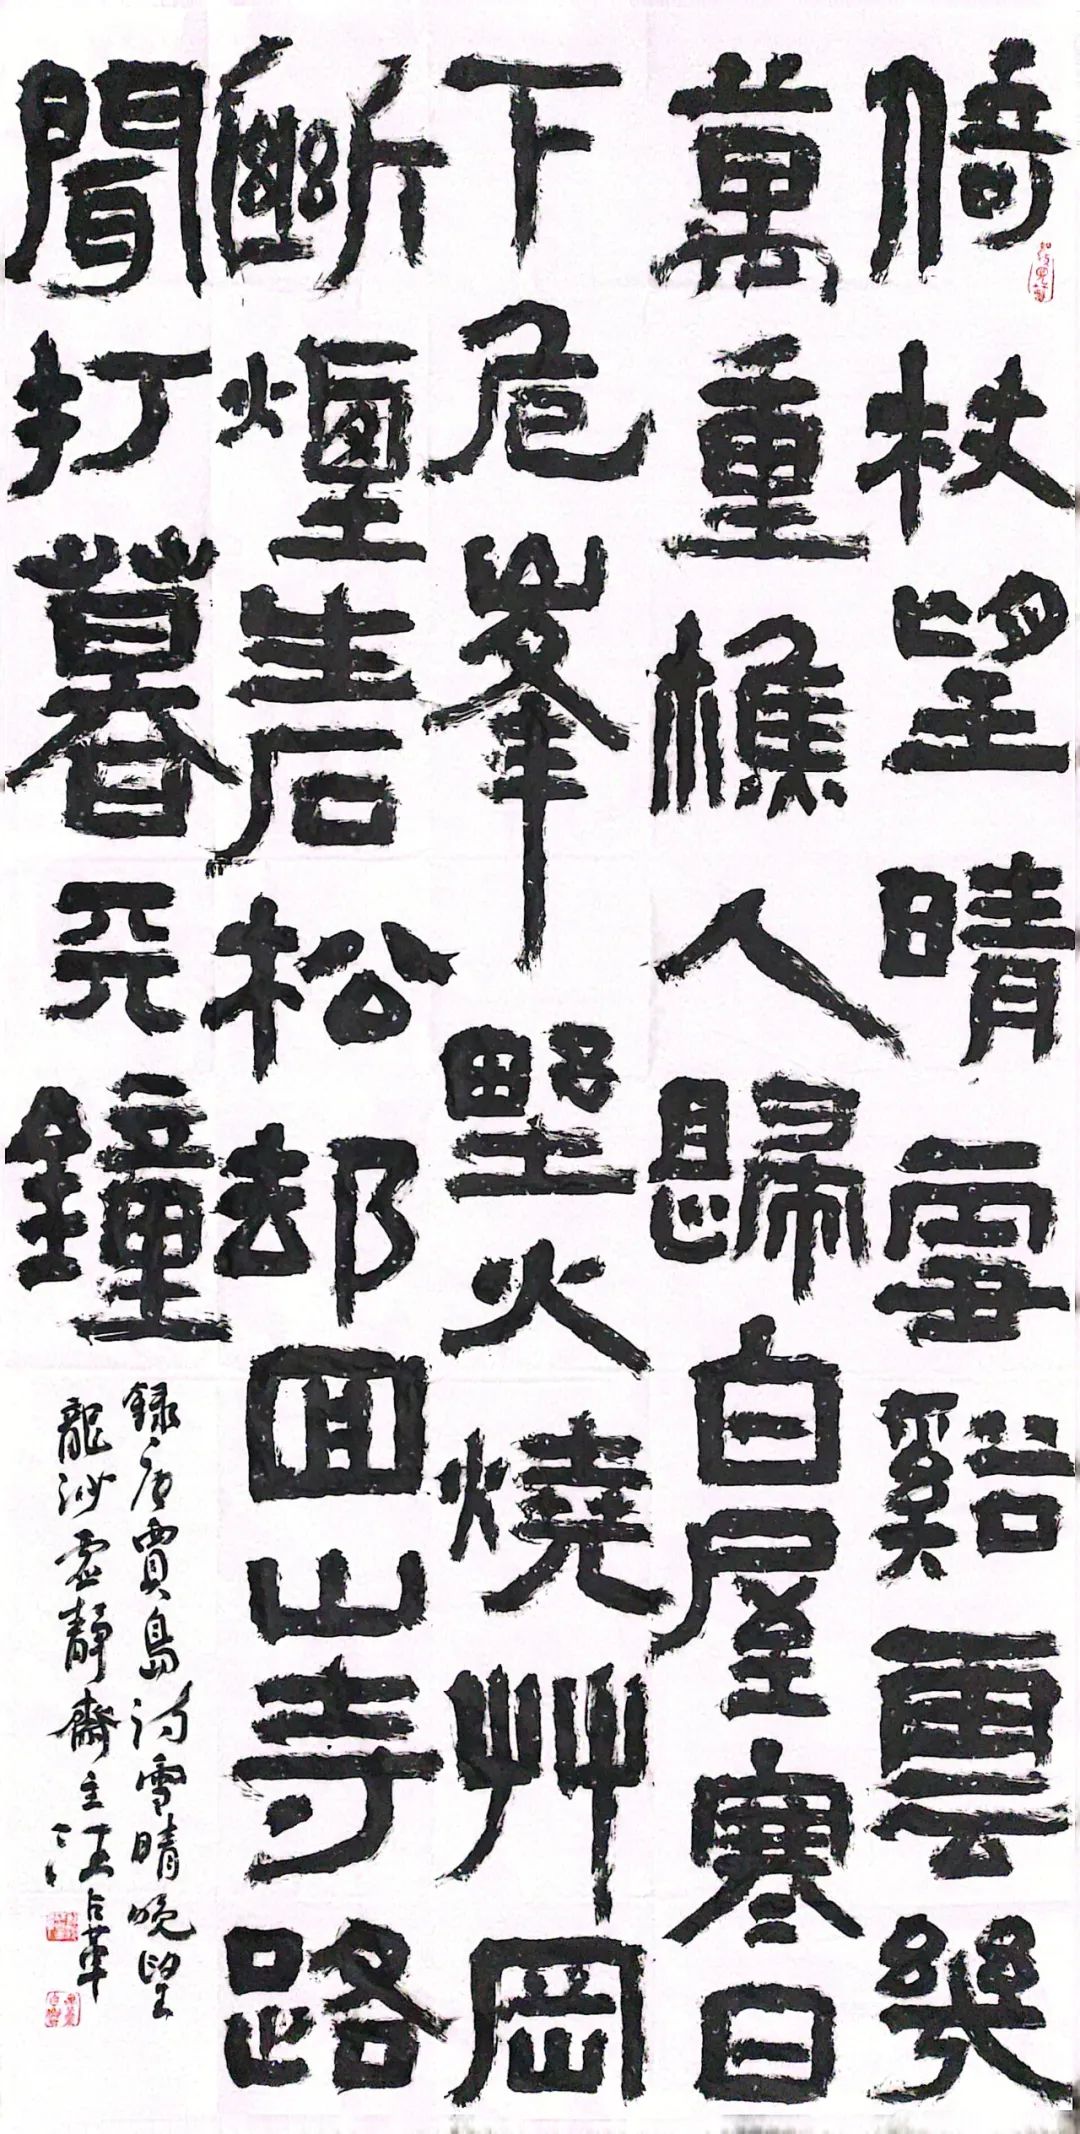 倚杖望晴雪谿雲幾
萬重樵人歸白屋寒日
下危峯野火燒艸岡
斷煙生石松却回山寺路
聞打暮天鐘
録唐賈島詩雪晴晚望
龍沙虛靜齋主汪占革